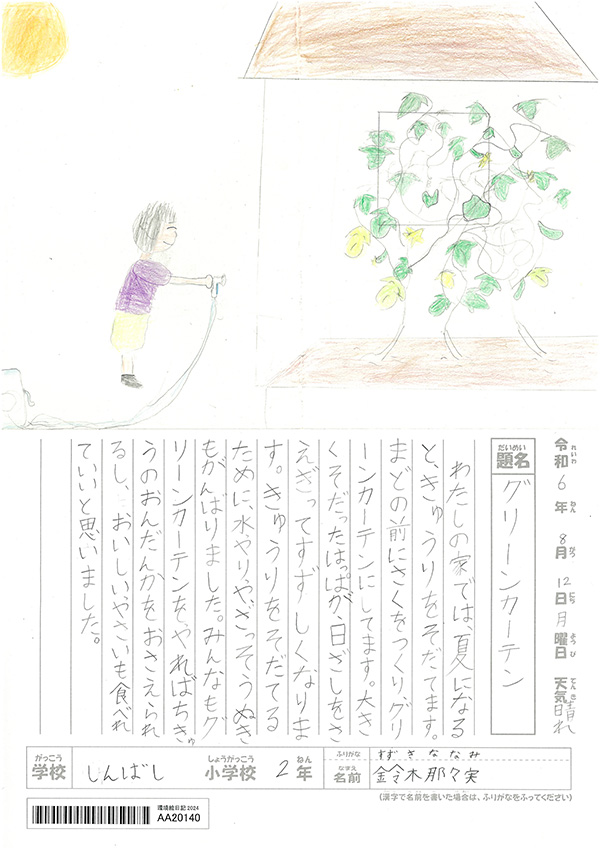 令和6年8月12日月曜日 天気晴れ
れいわ ねん がつ にち ようび てんき
だいめい
題名
グリーンカーテン
わたしの家では、夏になる
と、きゅうりをそだてます。
まどの前にさくをつくり、グリ
ーンカーテンにしてます。大き
くそだったはっぱが、日ざしをさ
えぎってすずしくなりま
す。きゅうりをそだてる
ために、水やりや、ざっそうぬき
もがんばりました。みんなもグ
リーンカーテンをやればちきゅ
うのおんだんかをおさえられ
るし、おいしいやさいも食べれ
ていいと思いました。
がっこう しょうがっこう ねん
学校 しんばし 小学校 2年
ふりがな すずきななみ
なまえ
名前 鈴木那々実
(漢字で名前を書いた場合は、ふりがなをふってください)
環境絵日記2024
AA20140